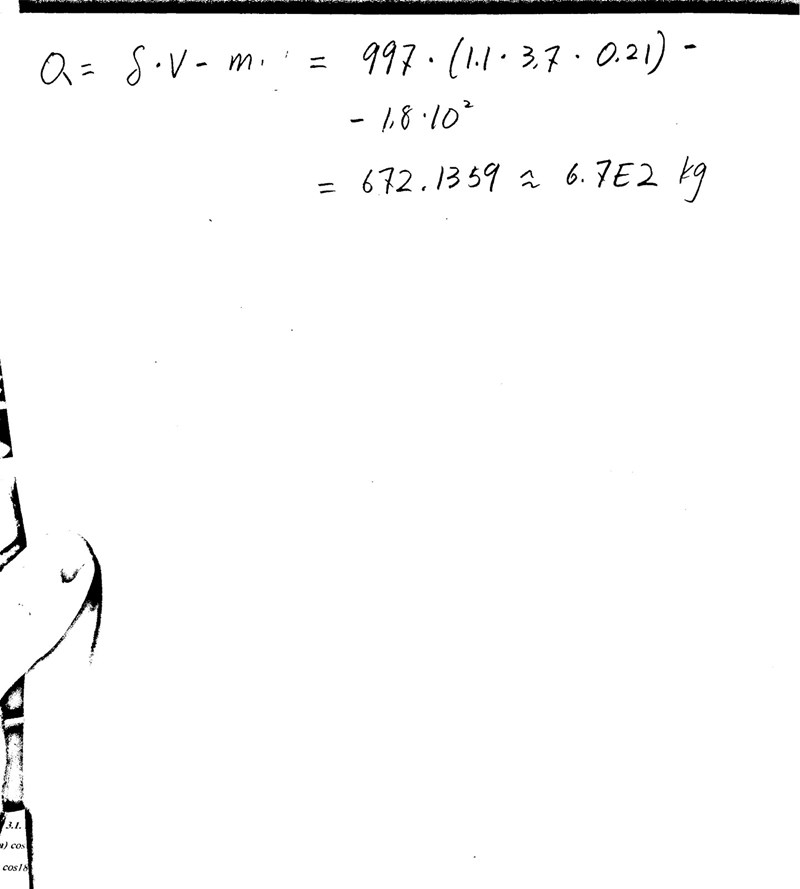 Q = δ·V - m. = 997 · (1.1 · 3,7 · 0.21) -
- 1,8 · 10²
= 672.1359 ≈ 6.7E2 kg
3.1.
cos
cos18